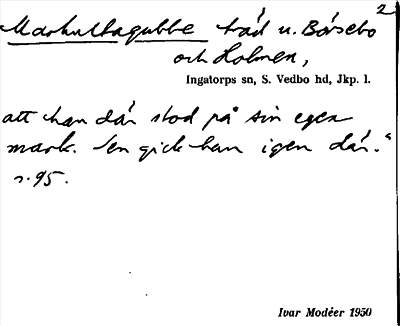 Markullagubbe träd n. Bårsebo 2
och Holmen,
Ingatorps sn, S. Vedbo hd, Jkp. l.
att han där stod på sin egen
mark. Sen gick han igen där."
s. 95.
Ivar Modéer 1950